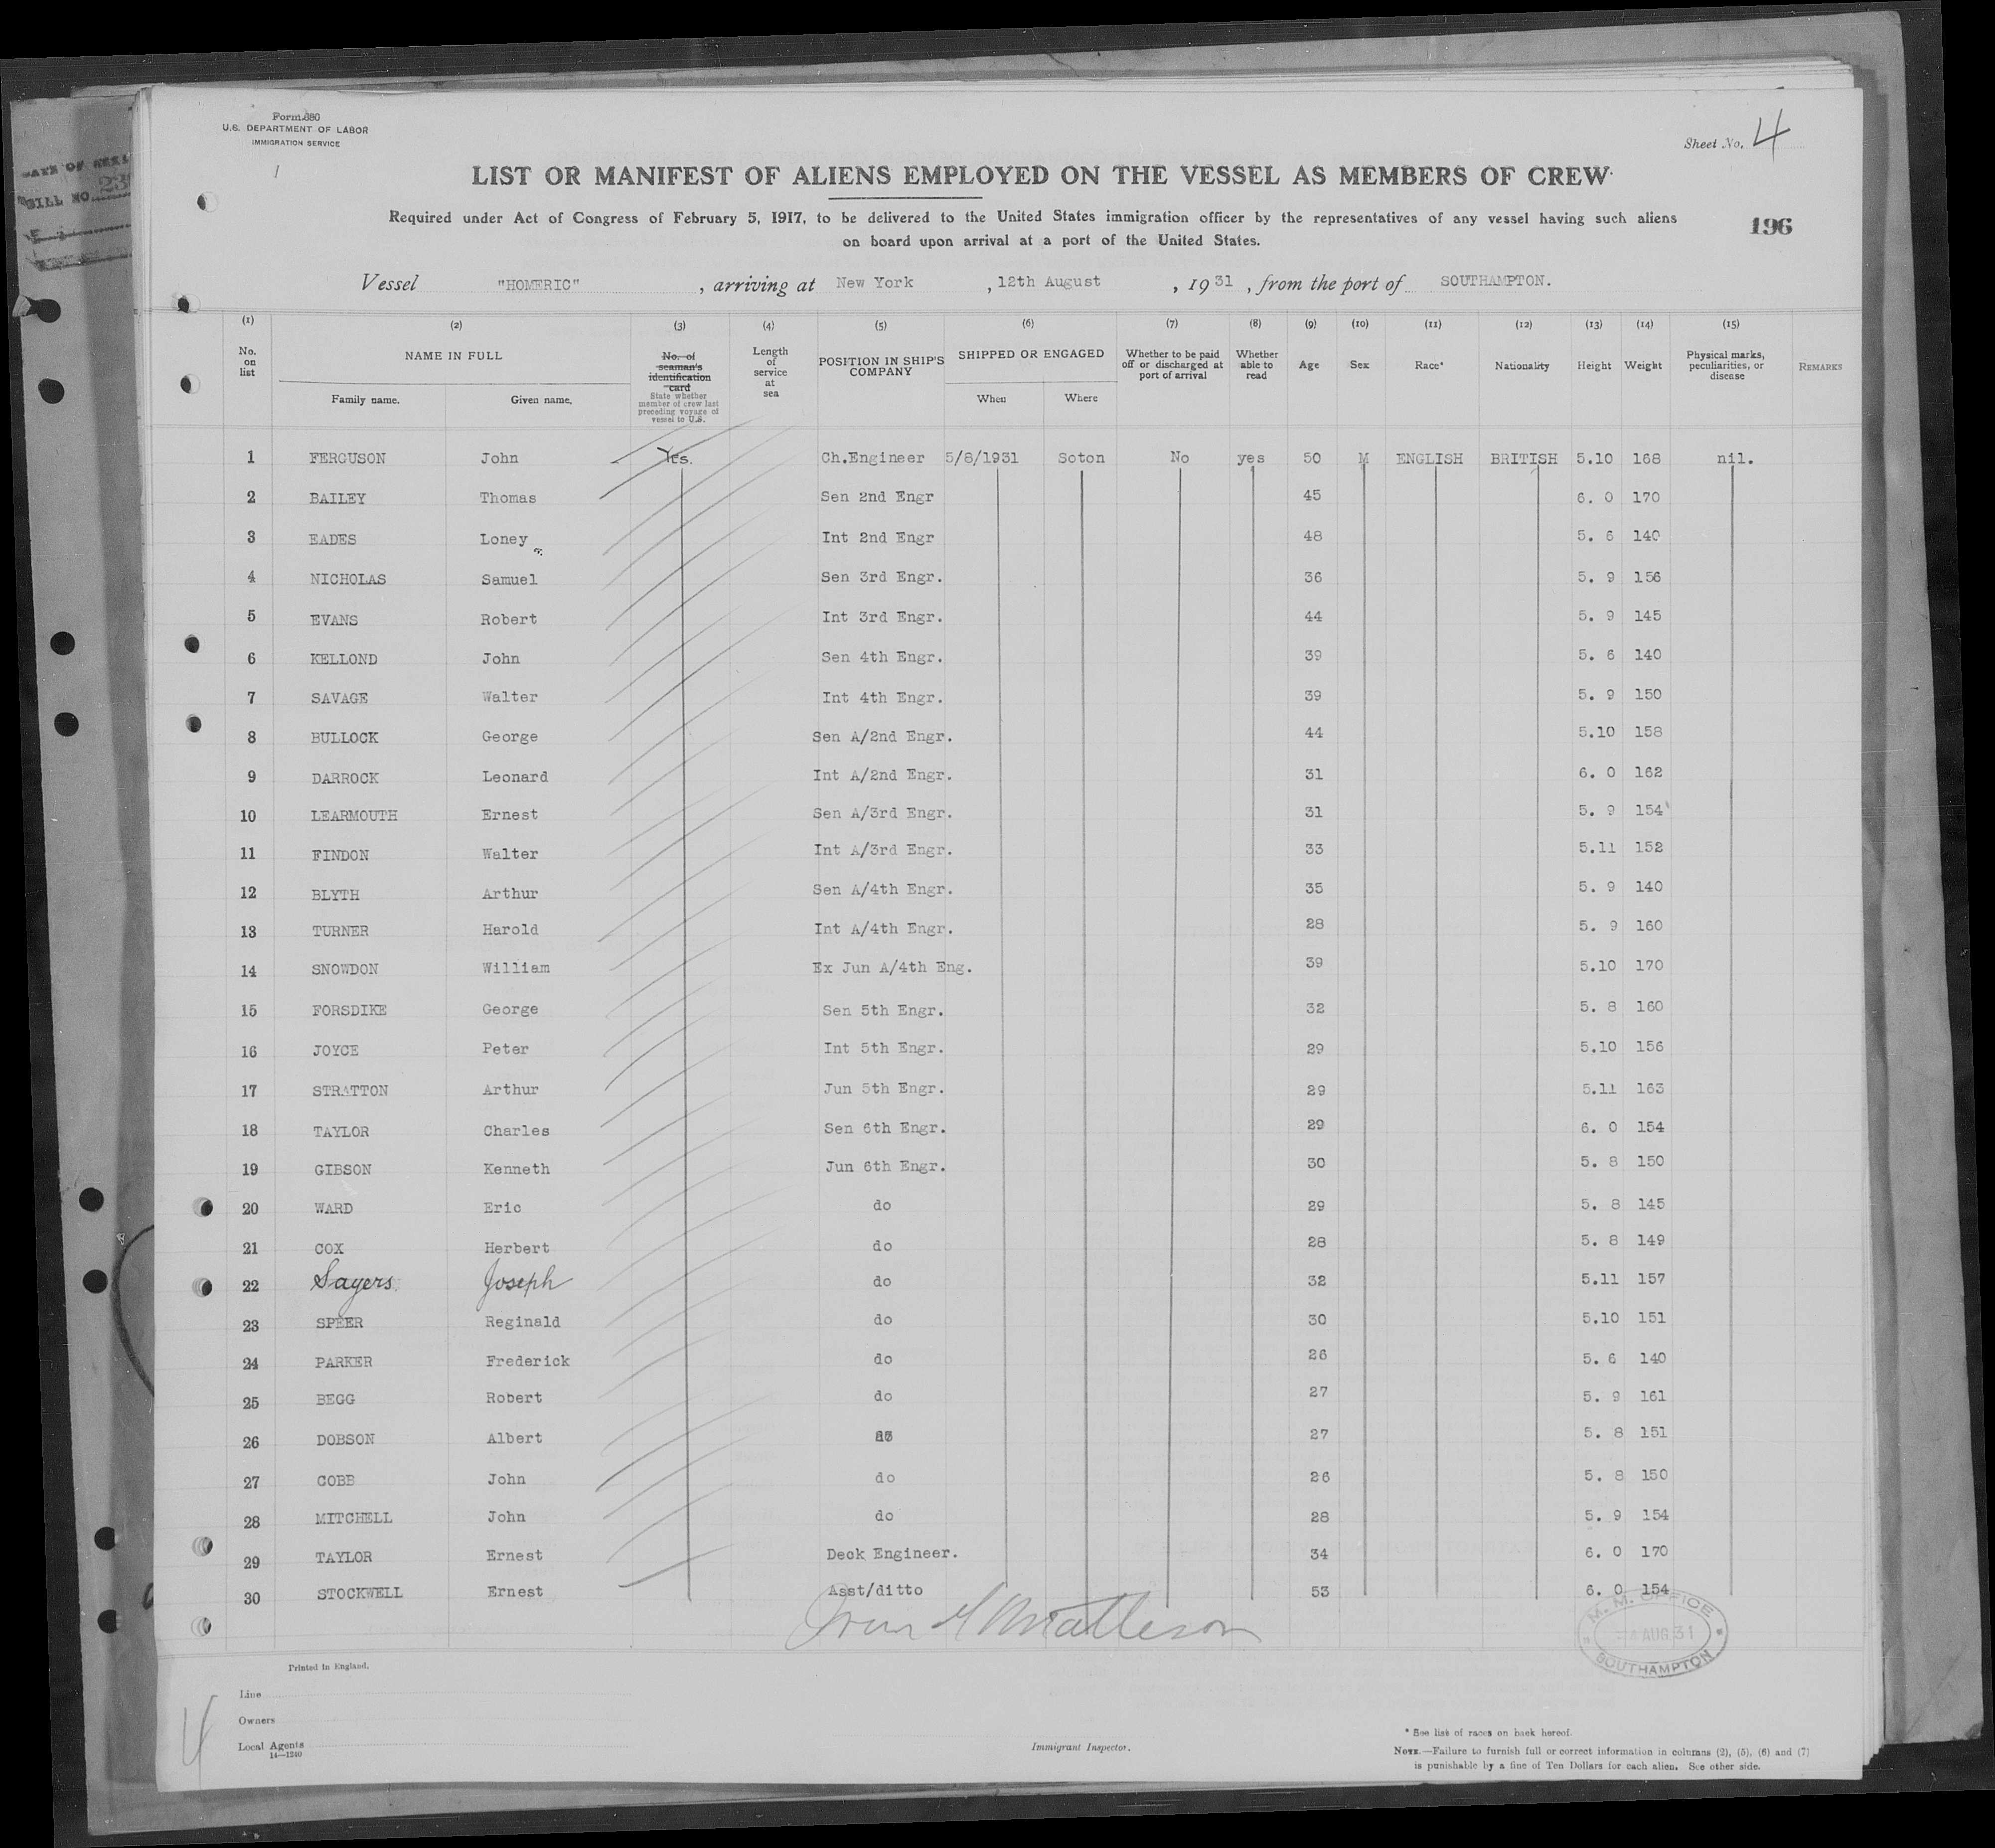 Form 680
U.S. DEPARTMENT OF LABOR
IMMIGRATION SERVICE
Sheet No. 4
LIST OR MANIFEST OF ALIENS EMPLOYED ON THE VESSEL AS MEMBERS OF CREW
Required under Act of Congress of February 5, 1917, to be delivered to the United States immigration officer by the representatives of any vessel having such aliens
on board upon arrival at a port of the United States.
196
Vessel "HOMERIC", arriving at New York, 12th August, 1931, from the port of SOUTHAMPTON.
(1) (2) (3) (4) (5) (6) (7) (8) (9) (10) (11) (12) (13) (14) (15)
No. on list NAME IN FULL Family name. Given name. No. of seaman's identification card State whether member of crew last preceding voyage of vessel to U.S. Length of service at sea POSITION IN SHIP'S COMPANY SHIPPED OR ENGAGED When Where Whether to be paid off or discharged at port of arrival Whether able to read Age Sex Race* Nationality Height Weight Physical marks, peculiarities, or disease REMARKS
1 FERGUSON John Yes. Ch.Engineer 5/8/1931 Soton No yes 50 M ENGLISH BRITISH 5.10 168 nil.
2 BAILEY Thomas Sen 2nd Engr 45 6. 0 170
3 EADES Loney Int 2nd Engr 48 5. 6 140
4 NICHOLAS Samuel Sen 3rd Engr. 36 5. 9 156
5 EVANS Robert Int 3rd Engr. 44 5. 9 145
6 KELLOND John Sen 4th Engr. 39 5. 6 140
7 SAVAGE Walter Int 4th Engr. 39 5. 9 150
8 BULLOCK George Sen A/2nd Engr. 44 5.10 158
9 DARROCK Leonard Int A/2nd Engr. 31 6. 0 162
10 LEARMOUTH Ernest Sen A/3rd Engr. 31 5. 9 154
11 FINDON Walter Int A/3rd Engr. 33 5.11 152
12 BLYTH Arthur Sen A/4th Engr. 35 5. 9 140
13 TURNER Harold Int A/4th Engr. 28 5. 9 160
14 SNOWDON William Ex Jun A/4th Eng. 39 5.10 170
15 FORSDIKE George Sen 5th Engr. 32 5. 8 160
16 JOYCE Peter Int 5th Engr. 29 5.10 156
17 STRATTON Arthur Jun 5th Engr. 29 5.11 163
18 TAYLOR Charles Sen 6th Engr. 29 6. 0 154
19 GIBSON Kenneth Jun 6th Engr. 30 5. 8 150
20 WARD Eric do 29 5. 8 145
21 COX Herbert do 28 5. 8 149
22 Sayers Joseph do 32 5.11 157
23 SPEER Reginald do 30 5.10 151
24 PARKER Frederick do 26 5. 6 140
25 BEGG Robert do 27 5. 9 161
26 DOBSON Albert 27 5. 8 151
27 COBB John do 26 5. 8 150
28 MITCHELL John do 28 5. 9 154
29 TAYLOR Ernest Deck Engineer. 34 6. 0 170
30 STOCKWELL Ernest Asst/ditto 53 6. 0 154
M. M. OFFICE
AUG 31
SOUTHAMPTON
Printed in England.
Line
Owners
Local Agents
14—1240
Immigrant Inspector.
* See list of races on back hereof.
NOTE.—Failure to furnish full or correct information in columns (2), (5), (6) and (7)
is punishable by a fine of Ten Dollars for each alien. See other side.
4